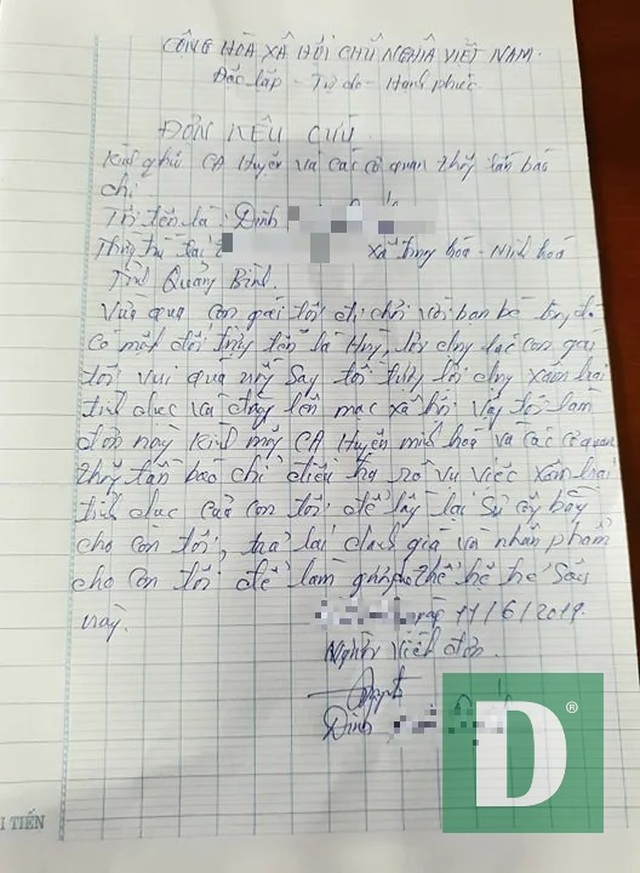 CỘNG HOÀ XÃ HỘI CHỦ NGHĨA VIỆT NAM.
Độc lập - Tự do - Hạnh phúc
ĐƠN KÊU CỨU
Kính gửi CA Huyện và các cơ quan thông tấn báo
chí
Tôi tên là: Đinh
Thường trú tại: xã trung hoá - Minh hoá
Tỉnh Quảng Bình.
Vừa qua con gái tôi đi chơi với bạn bè trong đó
có một đối tượng tên là Huy, lợi dụng lúc con gái
tôi vui quá uống say tối tượng lợi dụng xâm hại
tình dục và đăng lên mạc xã hội vậy tôi làm
đơn này kính mong CA Huyện minh hoá và các cơ quan
thông tấn báo chí điều tra rõ vụ việc xâm hại
tình dục của con tôi để lấy lại sự công bằng
cho con tôi, trả lại danh giá và nhân phẩm
cho con tôi để làm gương cho thế hệ trẻ sau
này.
ngày 11/6/2019.
Người viết đơn.
Đinh
I TIẾN
D®